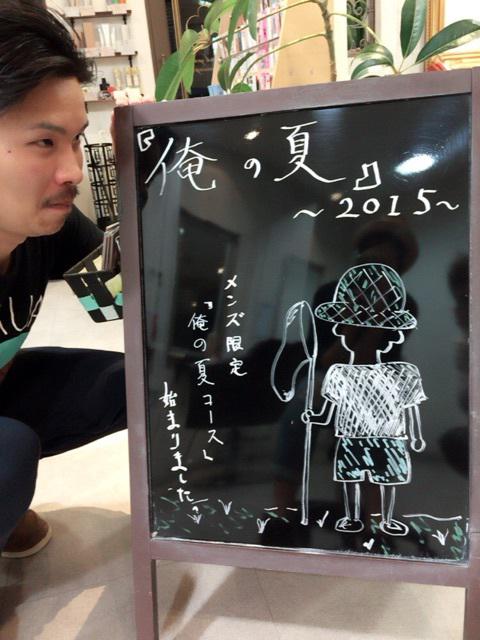 『俺の夏』
～2015～
メンズ限定
「俺の夏コース」
始まりました。